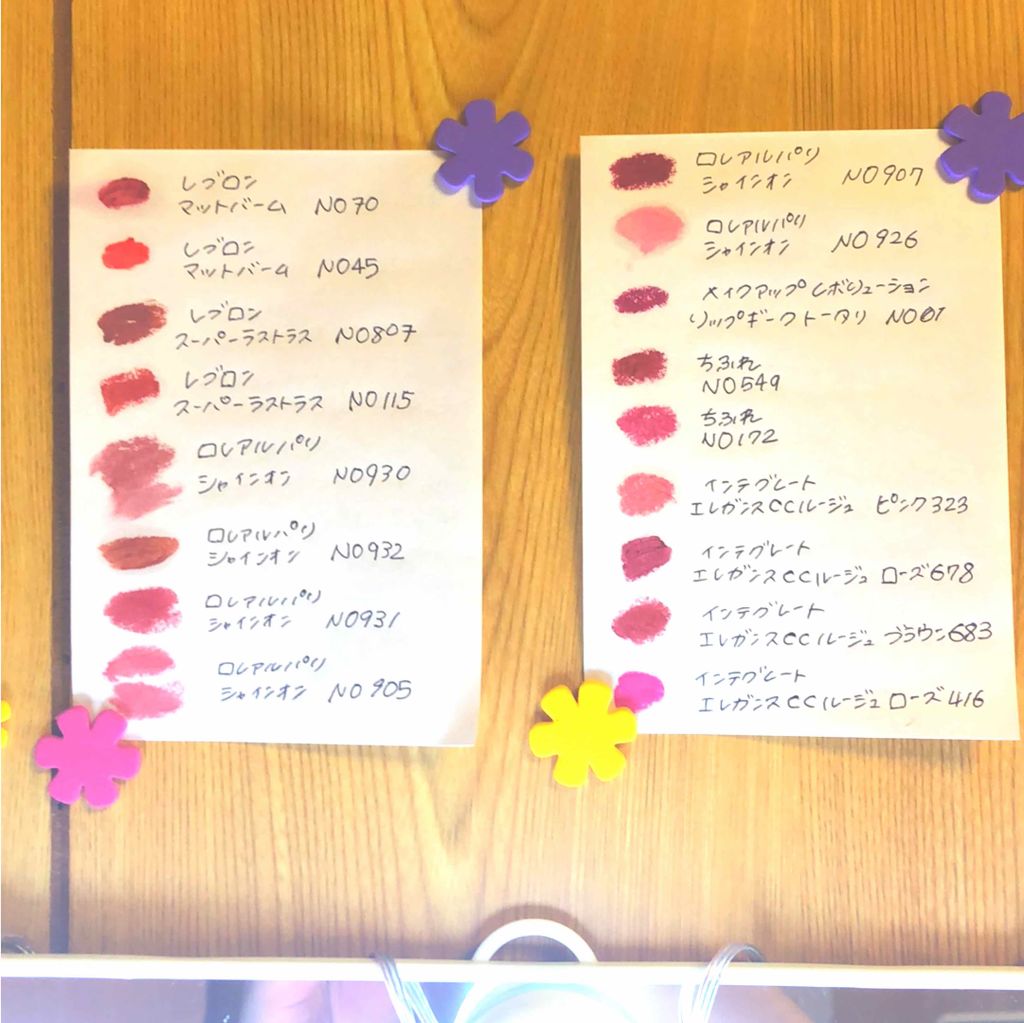 レブロン
マットバーム NO70
レブロン
マットバーム NO45
レブロン
スーパーラストラス NO807
レブロン
スーパーラストラス NO115
ロレアルパリ
シャインオン NO930
ロレアルパリ
シャインオン NO932
ロレアルパリ
シャインオン NO931
ロレアルパリ
シャインオン NO905
ロレアルパリ
シャインオン NO907
ロレアルパリ
シャインオン NO926
メイクアップレボリューション
リップギークトータリ NO01
ちふれ
NO549
ちふれ
NO172
インテグレート
エレガンスCCルージュ ピンク323
インテグレート
エレガンスCCルージュ ローズ678
インテグレート
エレガンスCCルージュ ブラウン683
インテグレート
エレガンスCCルージュ ローズ416